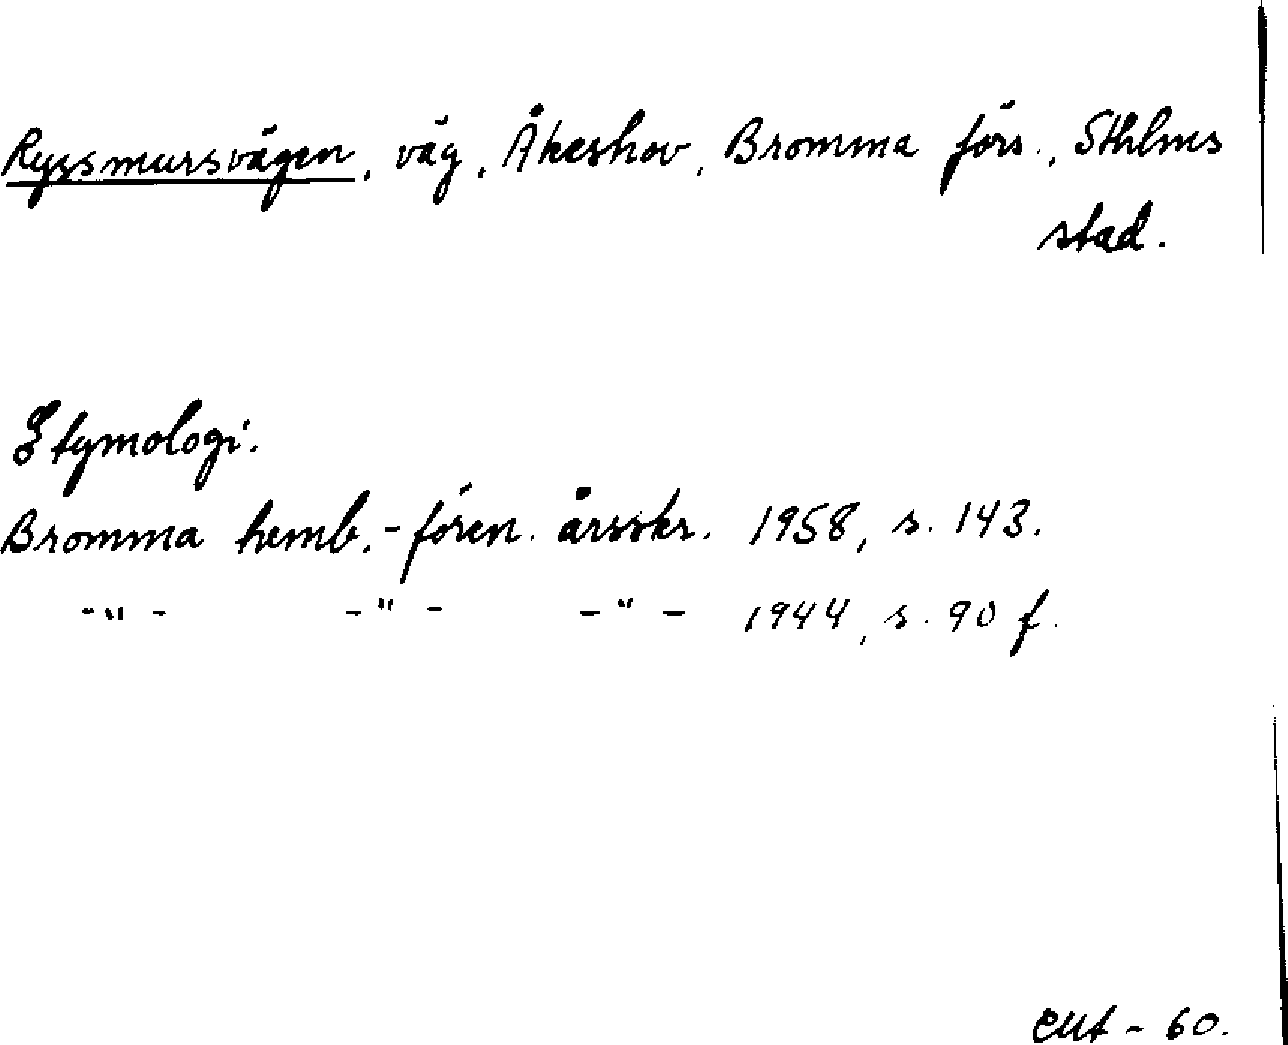 Ryssmursvägen, väg, Åkeshov, Bromma förs., Sthlms
stad.
Etymologi.
Bromma hemb.-fören. årsskr. 1958, s. 143.
-"- -"- -"- 1944, s. 90 f.
- 60.